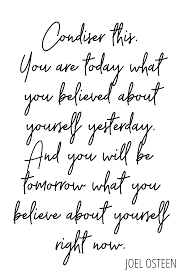 Condiser this.
You are today what
you believed about
yourself yesterday.
And you will be
tomorrow what you
believe about yourself
right now.
JOEL OSTEEN